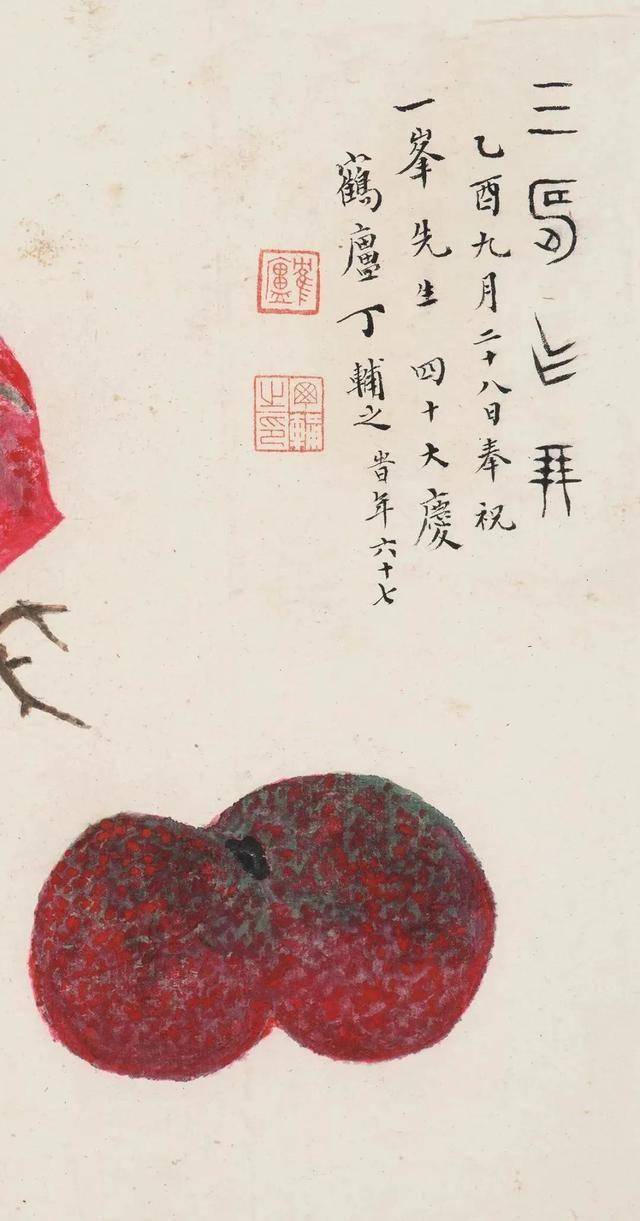 三壽作朋
乙酉九月二十八日奉祝
一峯先生四十大慶
鶴廬丁輔之峕年六十七
鶴廬
丁輔之印